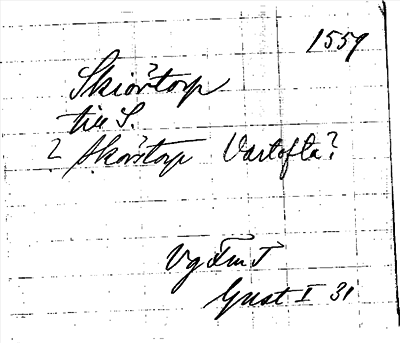 1559
Skiörtorp
till S.
2 Skörtorp Vartofta?
Vg Fm T
Gust I 31